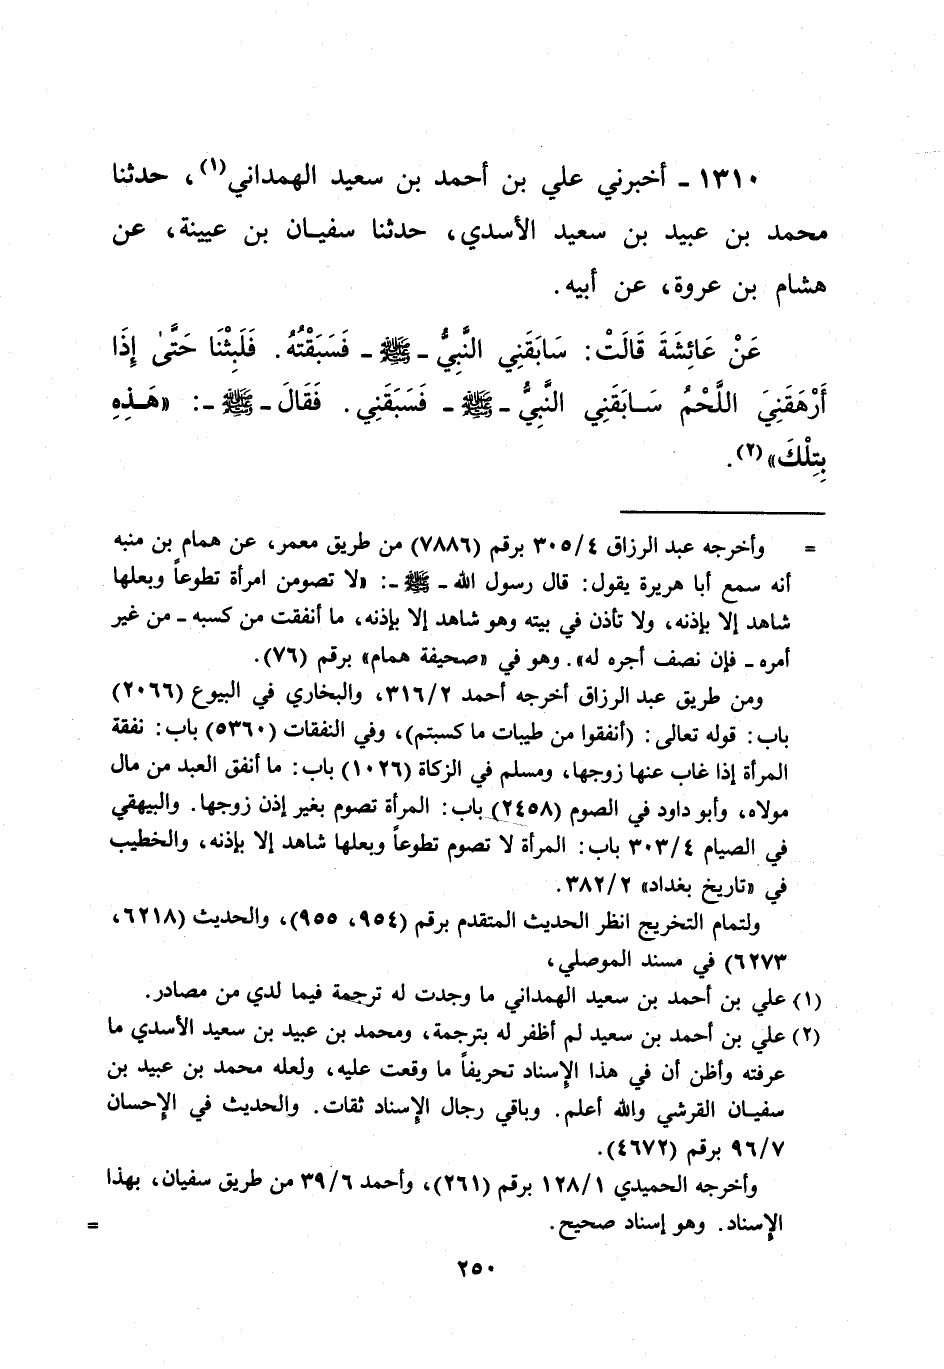 ١٣١٠ ـ أخبرني علي بن أحمد بن سعيد الهمداني(١)، حدثنا
محمد بن عبيد بن سعيد الأسدي، حدثنا سفيان بن عيينة، عن
هشام بن عروة، عن أبيه.
عَنْ عَائِشَةَ قَالَتْ: سَابَقَنِي النَّبِيُّ ـ ﷺ ـ فَسَبَقْتُهُ. فَلَبِثْنَا حَتَّى إِذَا
أَرْهَقَنِيَ اللَّحْمُ سَابَقَنِي النَّبِيُّ ـ ﷺ ـ فَسَبَقَنِي. فَقَالَ ـ ﷺ ـ: «هَذِهِ
بِتِلْكَ»(٢).
= وأخرجه عبد الرزاق ٣٠٥/٤ برقم (٧٨٨٦) من طريق معمر، عن همام بن منبه
أنه سمع أبا هريرة يقول: قال رسول الله ـ ﷺ ـ: «لا تصومن امرأة تطوعاً وبعلها
شاهد إلا بإذنه، ولا تأذن في بيته وهو شاهد إلا بإذنه، ما أنفقت من كسبه ـ من غير
أمره ـ فإن نصف أجره له». وهو في «صحيفة همام» برقم (٧٦).
ومن طريق عبد الرزاق أخرجه أحمد ٣١٦/٢، والبخاري في البيوع (٢٠٦٦)
باب: قوله تعالى: (أنفقوا من طيبات ما كسبتم)، وفي النفقات (٥٣٦٠) باب: نفقة
المرأة إذا غاب عنها زوجها، ومسلم في الزكاة (١٠٢٦) باب: ما أنفق العبد من مال
مولاه، وأبو داود في الصوم (٢٤٥٨) باب: المرأة تصوم بغير إذن زوجها. والبيهقي
في الصيام ٣٠٣/٤ باب: المرأة لا تصوم تطوعاً وبعلها شاهد إلا بإذنه، والخطيب
في «تاريخ بغداد» ٣٨٢/٢.
ولتمام التخريج انظر الحديث المتقدم برقم (٩٥٤، ٩٥٥)، والحديث (٦٢١٨،
٦٢٧٣) في مسند الموصلي،
(١) علي بن أحمد بن سعيد الهمداني ما وجدت له ترجمة فيما لدي من مصادر.
(٢) علي بن أحمد بن سعيد لم أظفر له بترجمة، ومحمد بن عبيد بن سعيد الأسدي ما
عرفته وأظن أن في هذا الإسناد تحريفاً ما وقعت عليه، ولعله محمد بن عبيد بن
سفيان القرشي والله أعلم. وباقي رجال الإسناد ثقات. والحديث في الإحسان
٩٦/٧ برقم (٤٦٧٢).
وأخرجه الحميدي ١٢٨/١ برقم (٢٦١)، وأحمد ٣٩/٦ من طريق سفيان، بهذا
الإسناد. وهو إسناد صحيح. =
٢٥٠